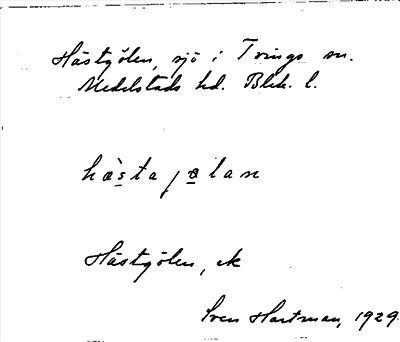 Hästgölen, sjö i Tvings sn.
Medelstads hd. Blek. l.
hæ̀sta jølan
Hästgölen, ek
Sven Hartman, 1929